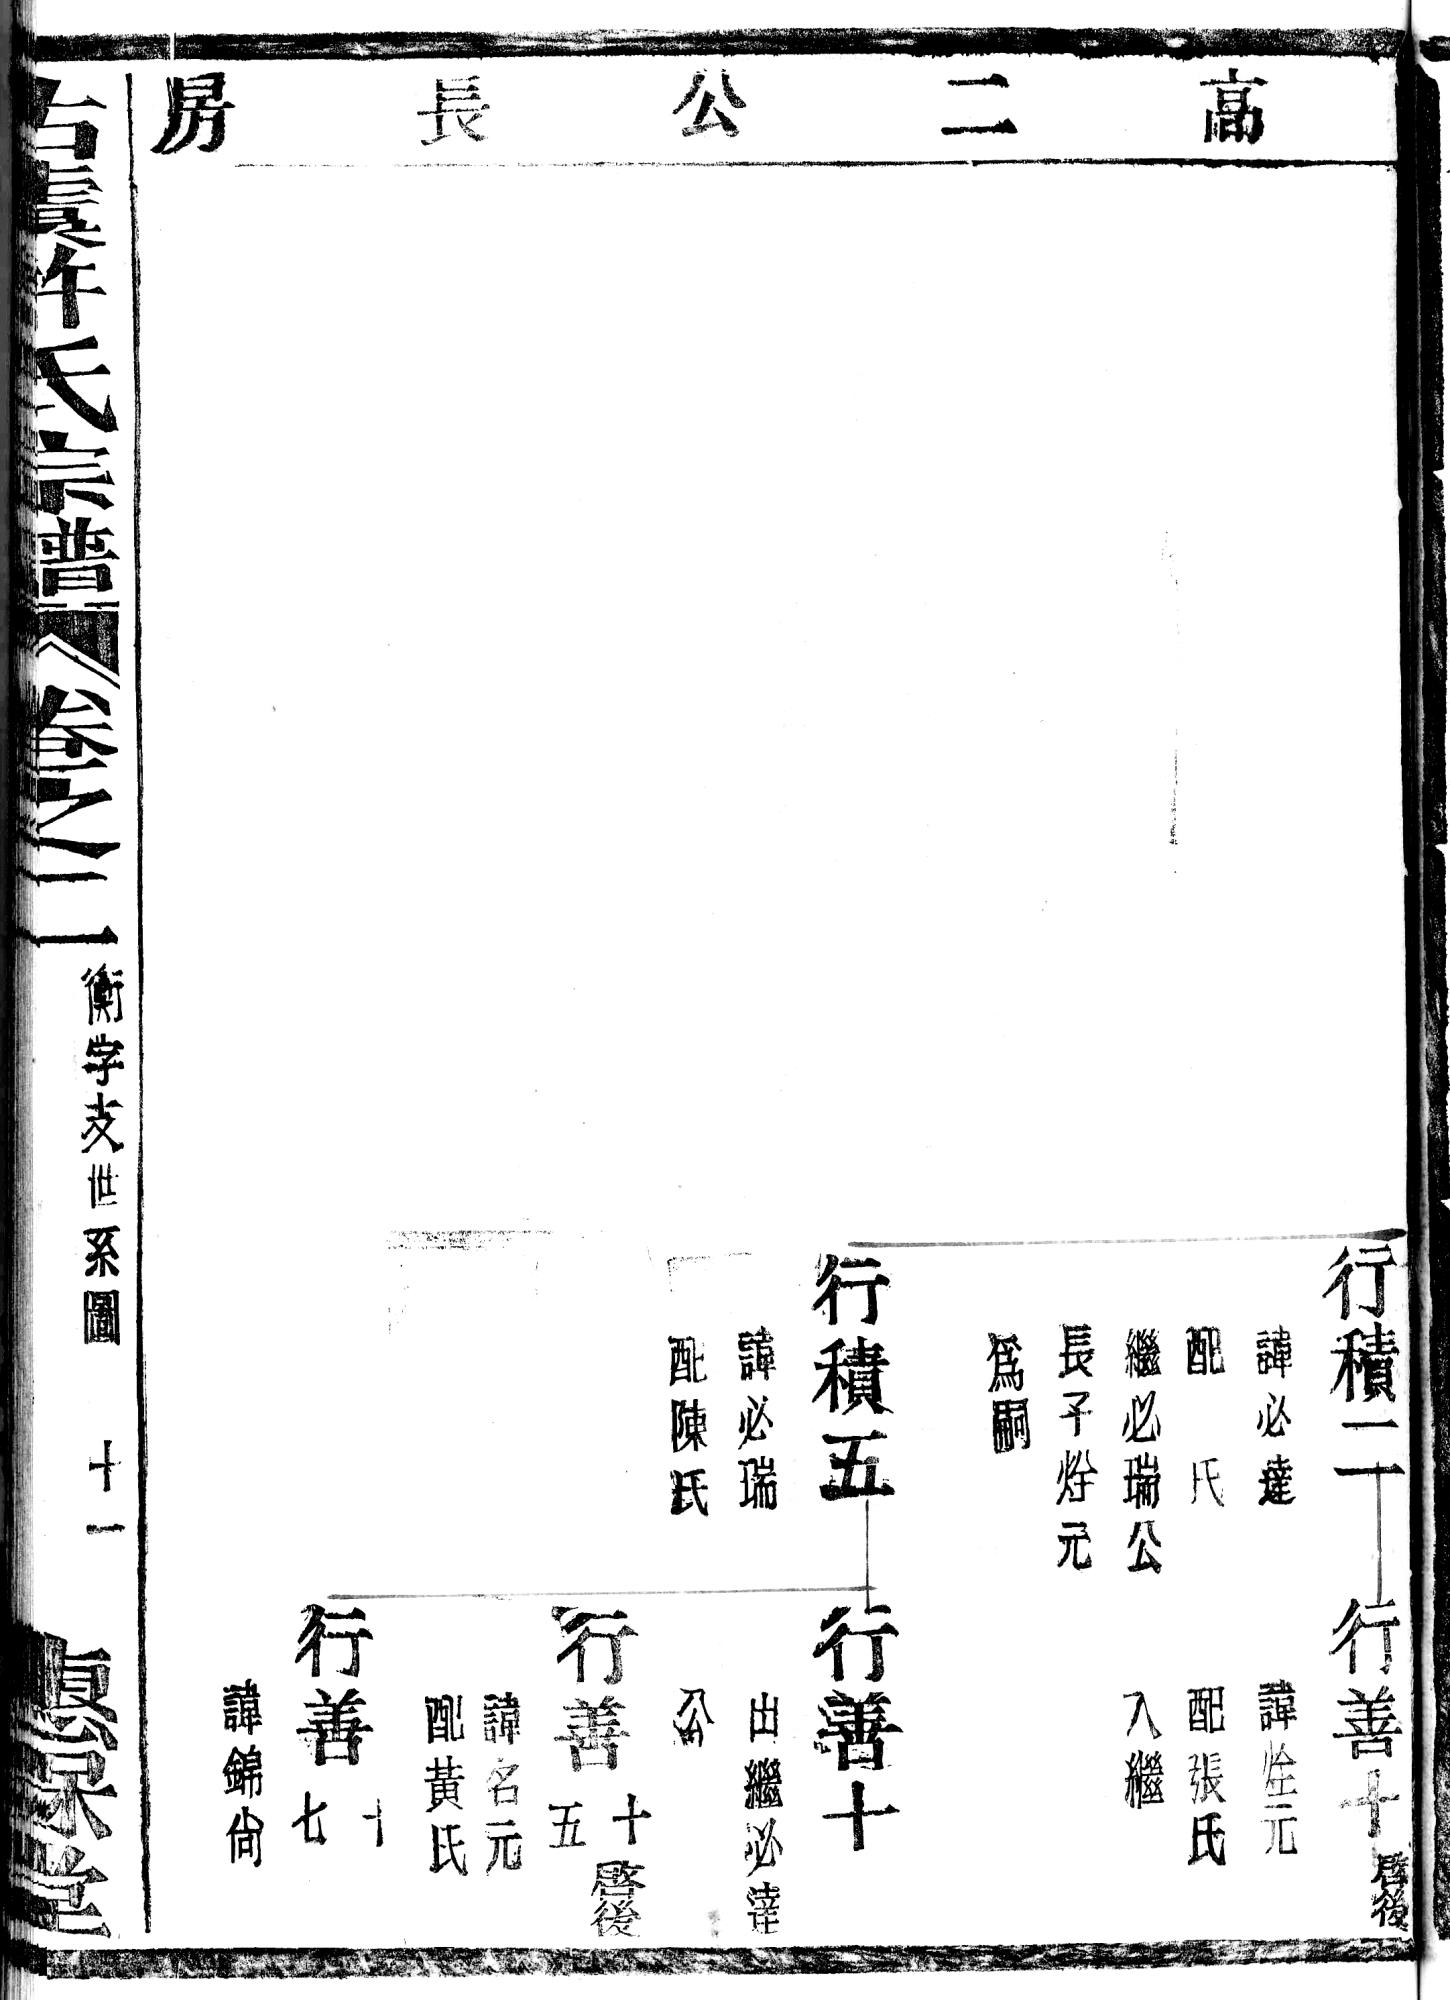 高二公長房
行積二
諱必達
配　氏
繼必瑞公
長子烇元
爲嗣
行積五
諱必瑞
配陳氏
行善十
啓後
諱烇元
配張氏
入繼
行善十
出繼必達
公
行善十五
啓後
諱名元
配黃氏
行善十七
諱錦尙
許氏宗譜
卷之二
衡字支世系圖
十一
堂